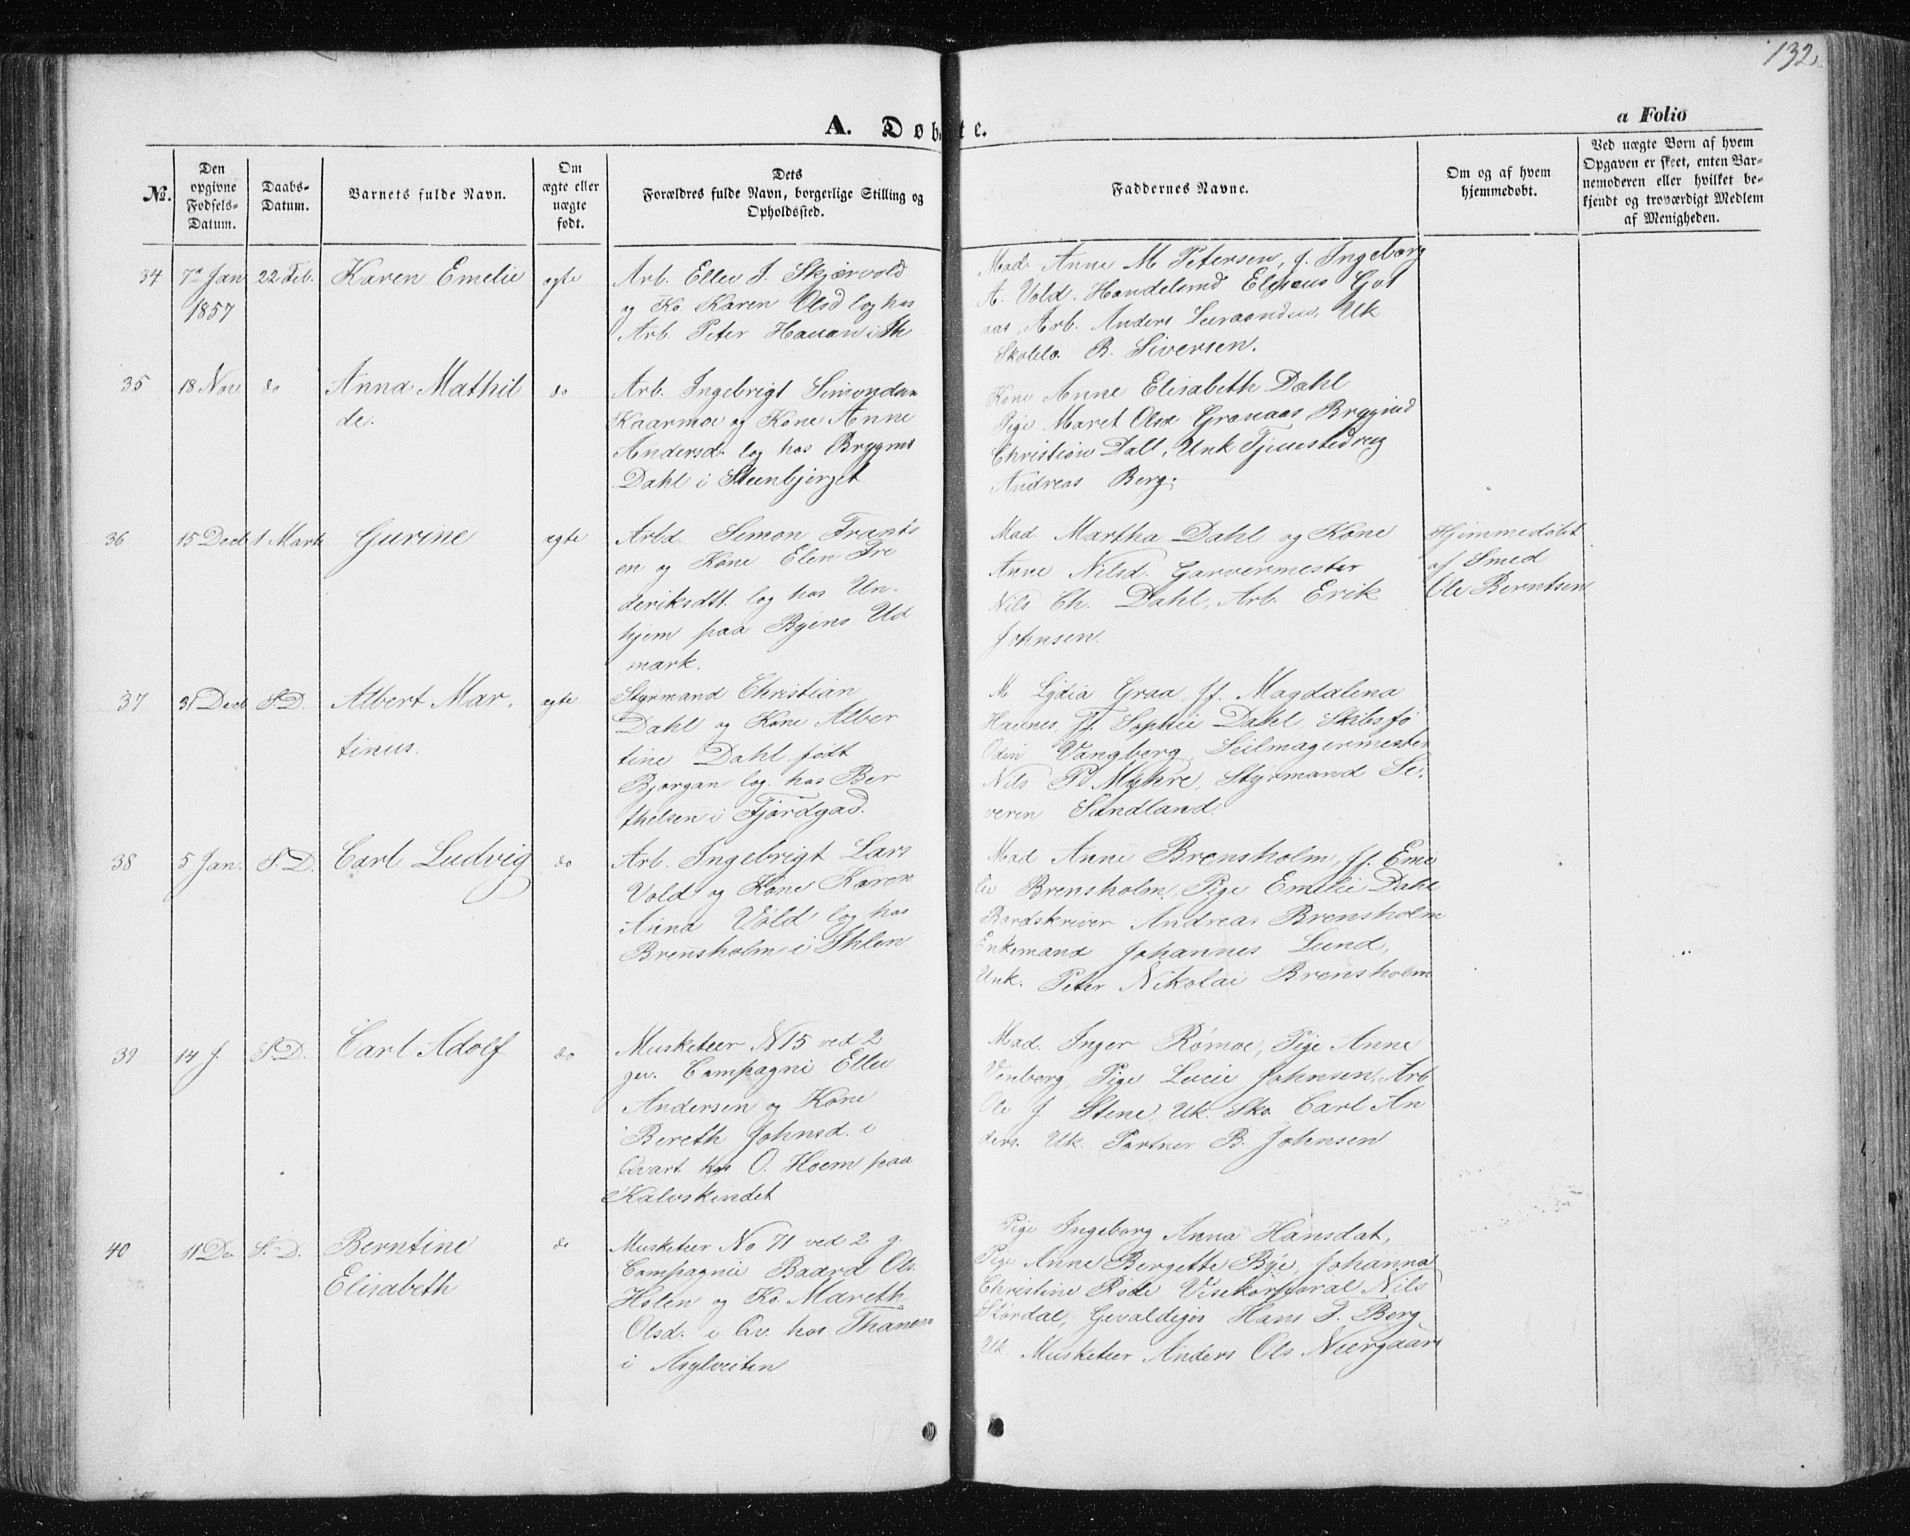 132.
A. Døbte.
a Folio
№.
Den opgivne Fødsels-Datum.
Daabs-Datum.
Barnets fulde Navn.
Om ægte eller uægte født.
Dets Forældres fulde Navn, borgerlige Stilling og Opholdssted.
Faddernes Navne.
Om og af hvem hjemmedøbt.
Ved uægte Børn af hvem Opgaven er skeet, enten Barnemoderen eller hvilket bekjendt og troværdigt Medlem af Menigheden.
34
7de Jan 1857
22 Feb.
Karen Emelie
egte
Arb. Ellev J. Skjærvold
og Ko. Karen Olsd log has
Arb. Peter Hauan i Ih
Mad. Anne M Petersen, f. Ingeborg
A. Vold. Handelsmd
Arb. Anders Uk
B. Siversen.
35
18 Nov
do
Anna Mathil
de.
do
Arb. Ingebrigt Simonds
Kaarmoe og Kone Anne
Andersd. log has Brygm
Dahl i Steenbjerget
Kone Anne Elisabeth Dahl
Pige Maret Olsd Granaas
Christian Dall, Unk
Andreas Berg.
36
15 Decb
1 Marts
Gurine
egte
Arbd. Simon Frants
en og Kone Elen Fre
deriksdtt. log has Un-
hjem paa Byens Ud
mark.
Mad. Martha Dahl og Kone
Anne Nilsd. Garvermester
Nils Ch. Dahl, Arb. Erik
Johnsen.
Hjemmedøbt
af Smed
Ole Berntsen
37
31 Decb
S.D.
Albert Mar.
tinus.
egte
Styrmand Christian
Dahl og Kone Alber
tine Dahl født
Bjørgan log. has Ber
thelsen i Fjordgad.
M. Lydia Graa, Jf. Magdalena
Havnes, Jf. Sophie Dahl, Skibsfø
Odin Vangberg, Seilmagermester
Nils P Myhre, Styrmand Se-
veren Sundland.
38
5 Jan.
S.D.
Carl Ludvig
do
Arb. Ingebrigt Lars
Vold og Kone Karen
Anna Vold log has
Brensholm i Ihlen
Mad Anne Brensholm, Jf. Emi
lie Brensholm, Pige Emilie Dahl
Andreas Brensholm
Enkemand Johannes Lund,
Unk. Peter Nikolai Brensholm
39
14 J.
S.D.
Carl Adolf
do
Musketeer N 15 ved 2
gev. Compagni Ellev
Andersen og Kone
Bereth Johnsd. i
Qvart hos O. Hoem paa
Kalvskindet
Mad. Inger Rømoe, Pige Anne
Venberg, Pige Lucie Johnsen, Arb
Ole J. Stene, Uk. Sko. Carl An
ders. Uk. Portner B. Johnsen
40
11 Do
S.D.
Berntine
Elisabeth
do
Musketeer No 71 ved 2 g.
Compagnie Baard Ols.
Holen og Ko. Mareth
Olsd. i Qv. hos Thanem
i Asylveiten
Pige Ingeborg Anna Hansdat,
Pige Anne Bergette Bye, Johanna
Christine Røde Visekorporal Nils
Størdal, Gevaldiger Hans J. Berg
Uk. Musketeer Anders Ols Neergaard